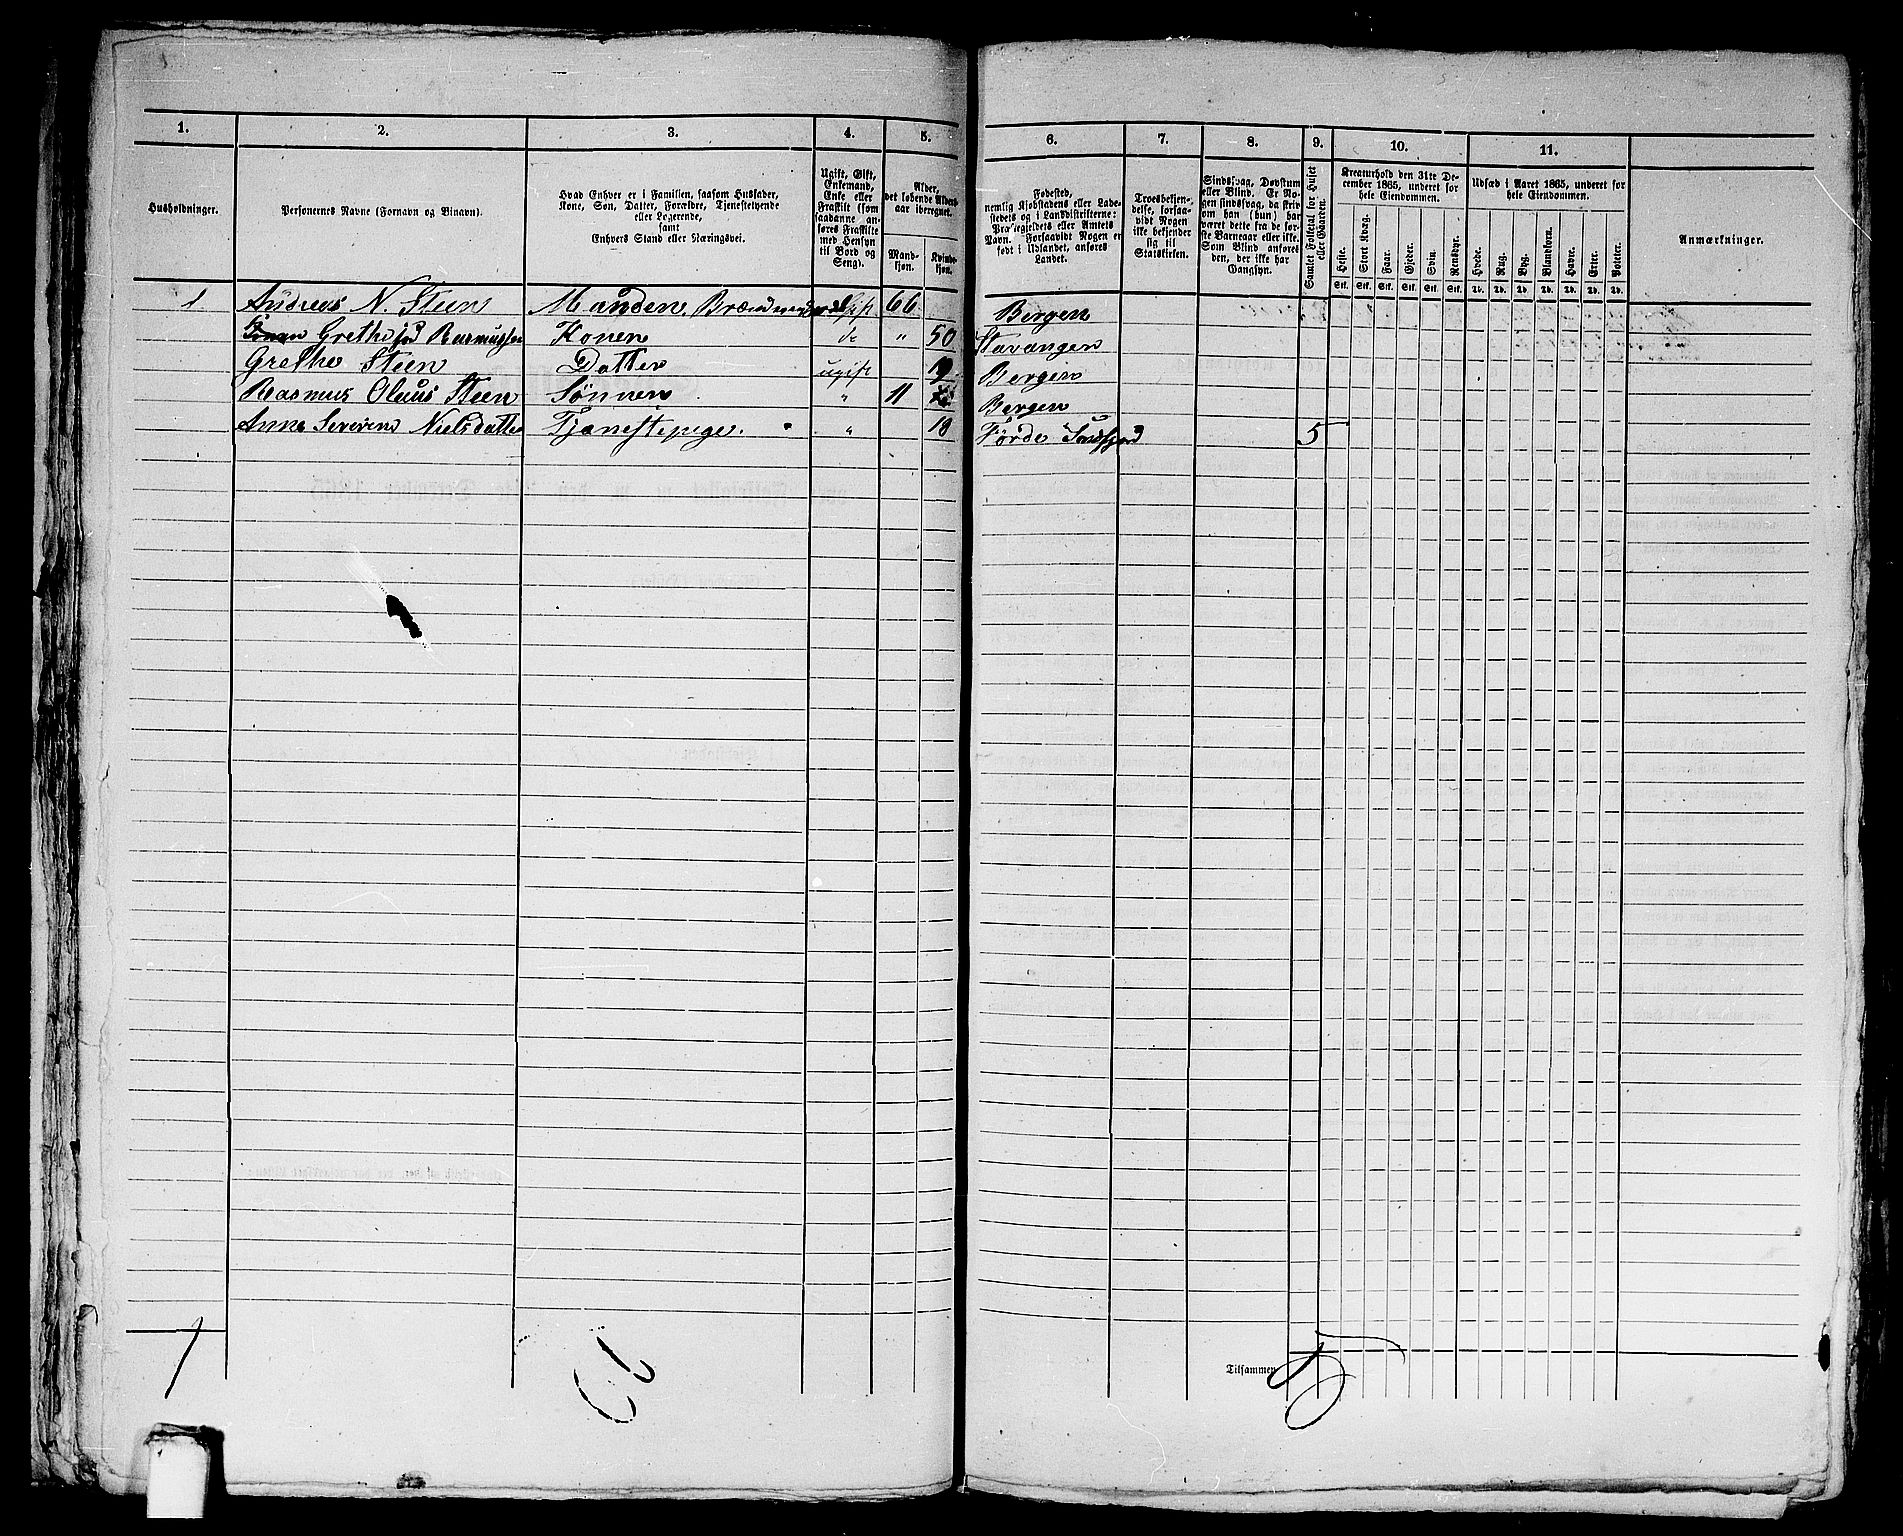 1. 2. 3. 4. 5. 6. 7. 8. 9. 10. 11.
Husholdninger.
Personernes Navne (Fornavn og Binavn).
Hvad Enhver er i Familien, saasom Husfader,
Kone, Søn, Datter, Forældre, Tjenestetyende
eller Logerende,
samt
Enhvers Stand eller Næringsvei.
Ugift, Gift,
Enkemand,
Enke eller
Fraskilt (som
saadanne an-
føres Fraskilte
med Hensyn
til Bord og
Seng).
Alder,
det løbende Alders-
aar iberegnet.
Mand-
kjøn.
Kvinde-
kjøn.
Fødested,
nemlig Kjøbstadens eller Lade-
stedets og i Landdistrikterne:
Præstegjeldets eller Amtets
Navn. Forsaavidt Nogen er
født i Udlandet, anføres
Landet.
Troesbekjen-
delse, forsaa-
vidt Nogen
ikke bekjender
sig til
Statskirken.
Sindssvag, Døvstum
eller Blind. Er No-
gen sindssvag, da skriv
om han (hun) har
været dette fra de før-
ste Barneaar eller ikke.
Som Blind anføres
den, der ikke har
Gangsyn.
Samlet Folketal for Huset
eller Gaarden.
Kreaturhold den 31te De-
cember 1865, underet for
hele Eiendommen.
Heste. Stort Kvæg. Faar. Gjeder. Svin. Rensdyr.
Stk. Stk. Stk. Stk. Stk. Stk.
Udsæd i Aaret 1865, underet for
hele Eiendommen.
Hvede. Rug. Byg. Blandkorn. Havre. Erter. Poteter.
Td. Td. Td. Td. Td. Td. Td.
Anmærkninger.
1 Andreas N. Steen Manden Gift 66 Bergen
Grethe fød Rasmussen Konen do " 50 Stavanger
Grethe Steen Datter ugift 19 Bergen
Rasmus Oluus Steen Sønnen " 11 Bergen
Anne Severine Nielsdatter Tjænestepige. " 18 Førde Søndfjord 5
1
Tilsammen 5